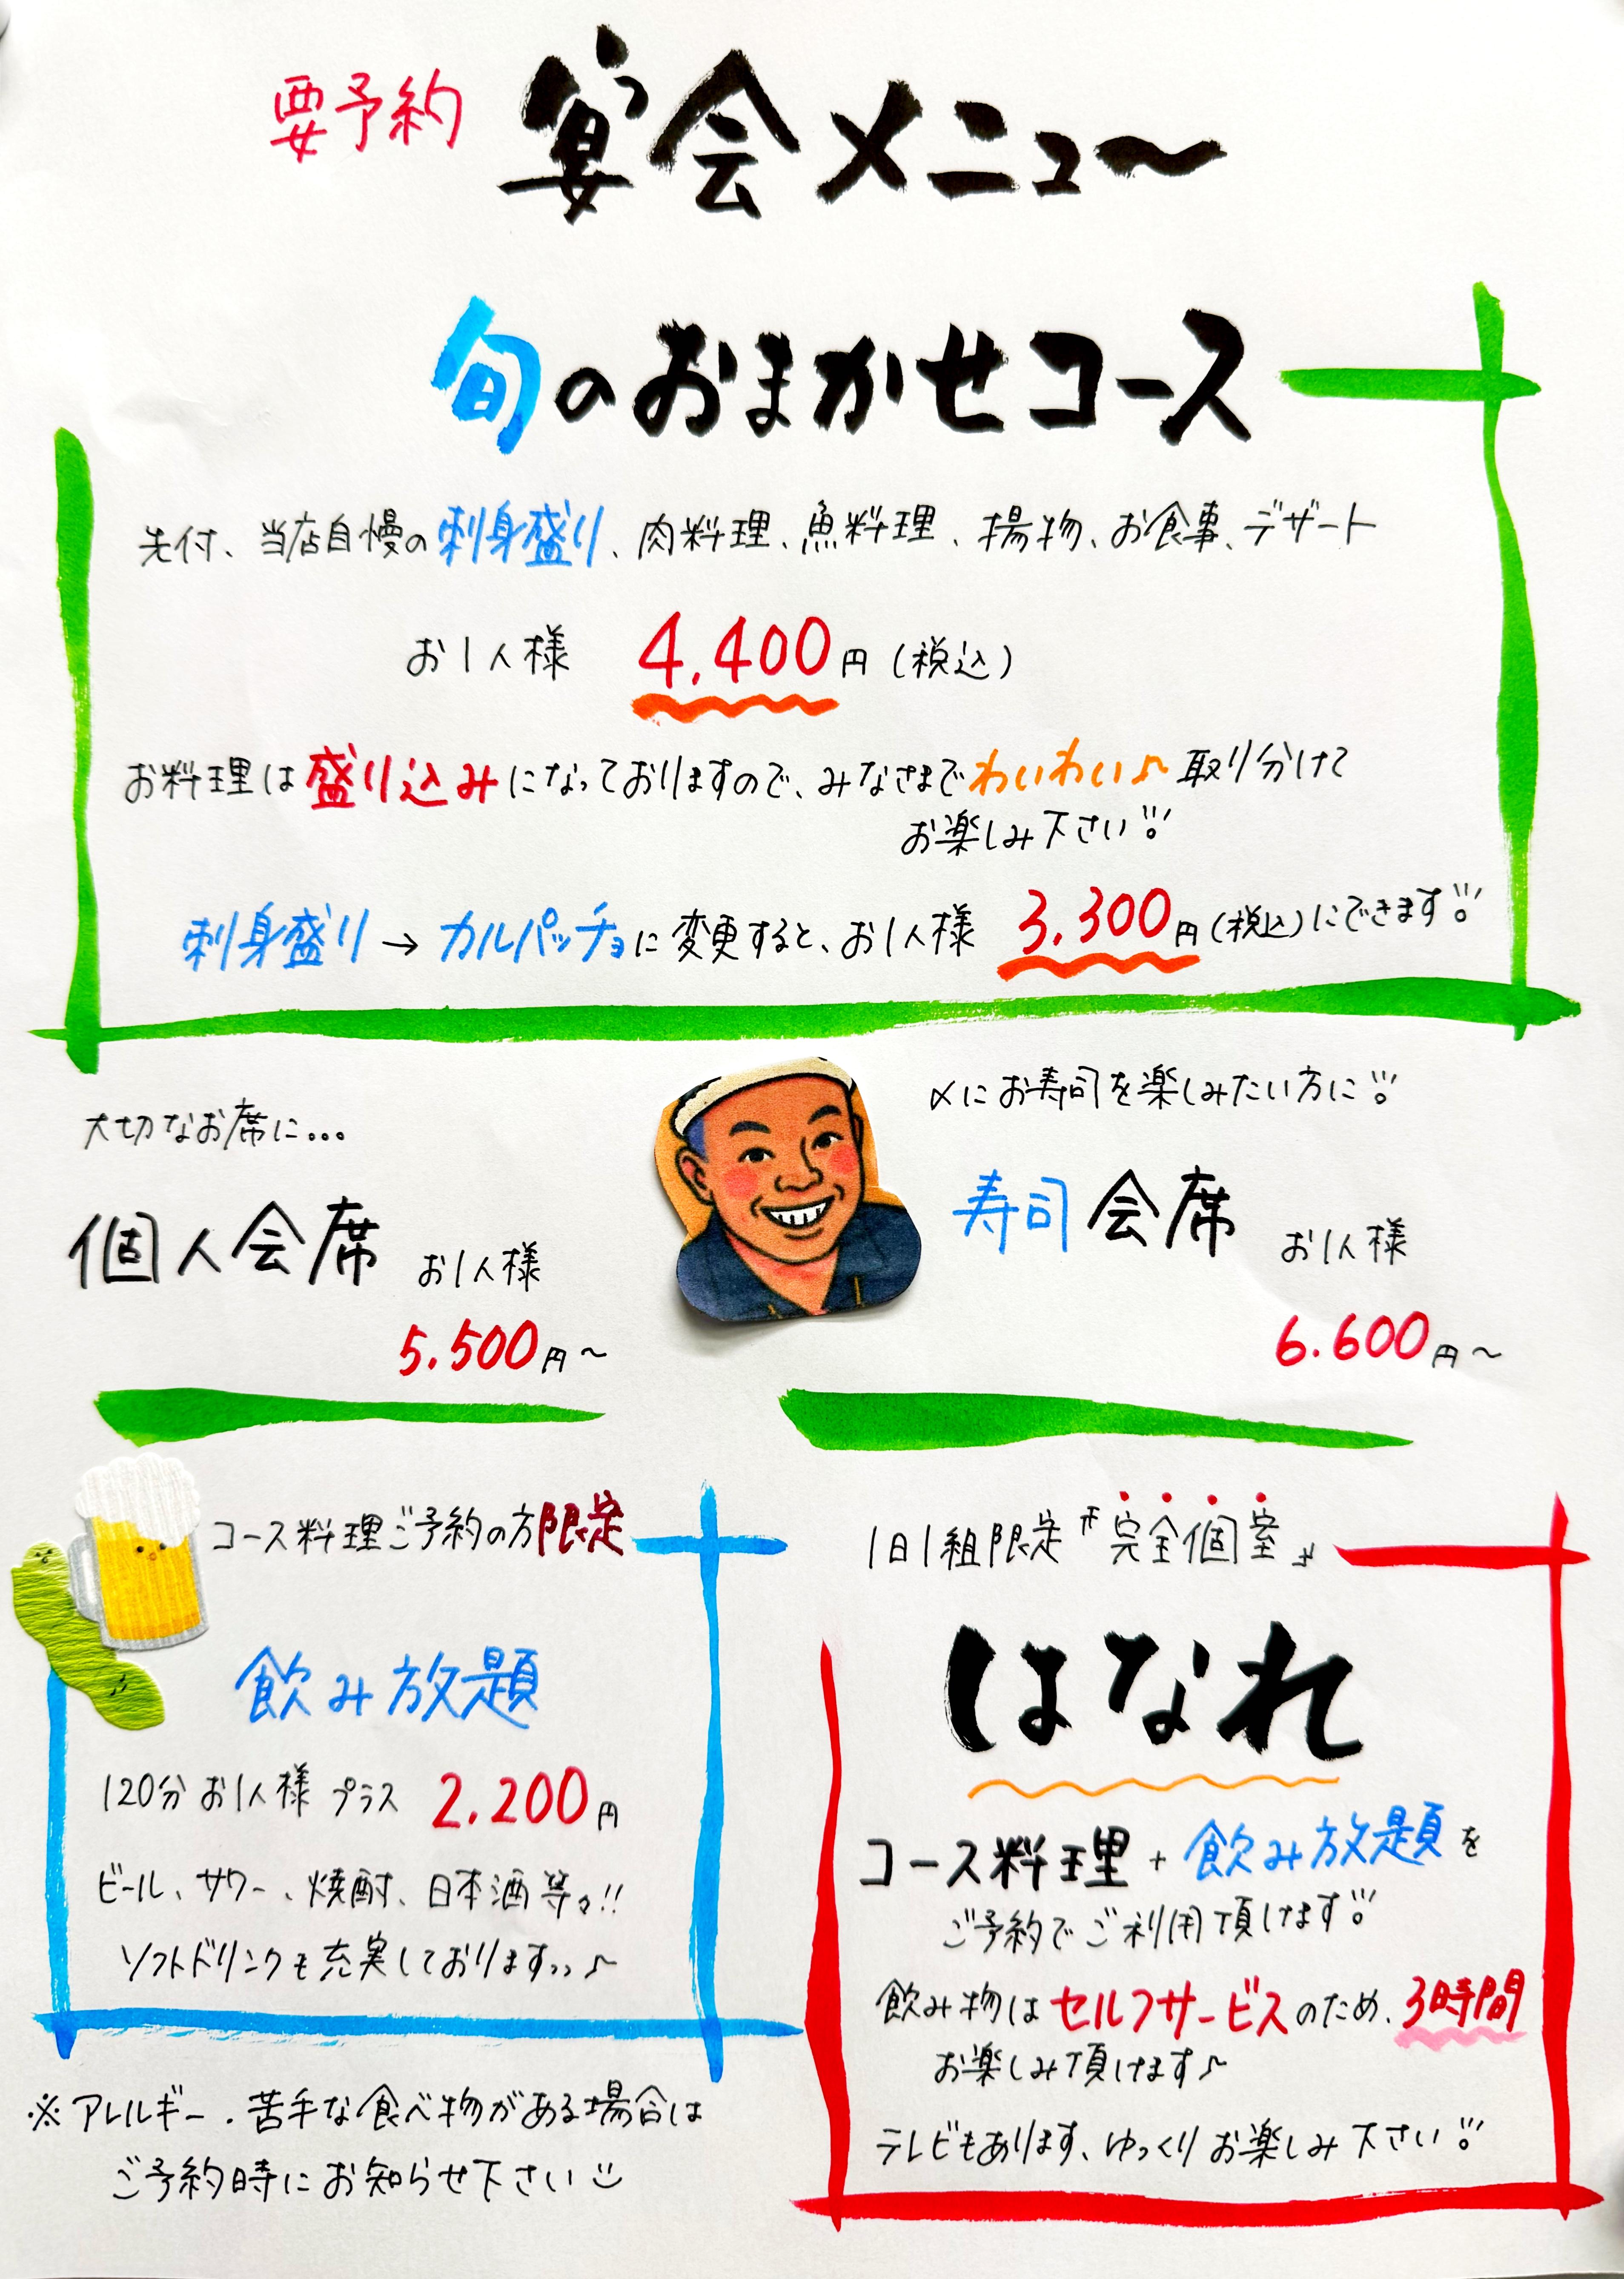 要予約
宴会メニュー
旬のおまかせコース
先付、当店自慢の刺身盛り、肉料理、魚料理、揚物、お食事、デザート
お1人様 4,400円（税込）
お料理は盛り込みになっておりますので、みなさまでわいわい♪取り分けて
お楽しみ下さい!!!
刺身盛り→カルパッチョに変更すると、お1人様 3,300円（税込）にできます!!!
大切なお席に...
個人会席 お1人様
5.500円～
〆にお寿司を楽しみたい方に!!!
寿司会席 お1人様
6.600円～
コース料理ご予約の方限定
飲み放題
120分 お1人様 プラス 2.200円
ビール、サワー、焼酎、日本酒等々!!
ソフトドリンクも充実しております♪
※アレルギー・苦手な食べ物がある場合は
ご予約時にお知らせ下さい
1日1組限定『完全個室』
はなれ
コース料理+飲み放題を
ご予約でご利用頂けます!!!
飲み物はセルフサービスのため、3時間
お楽しみ頂けます♪
テレビもあります、ゆっくりお楽しみ下さい!!!